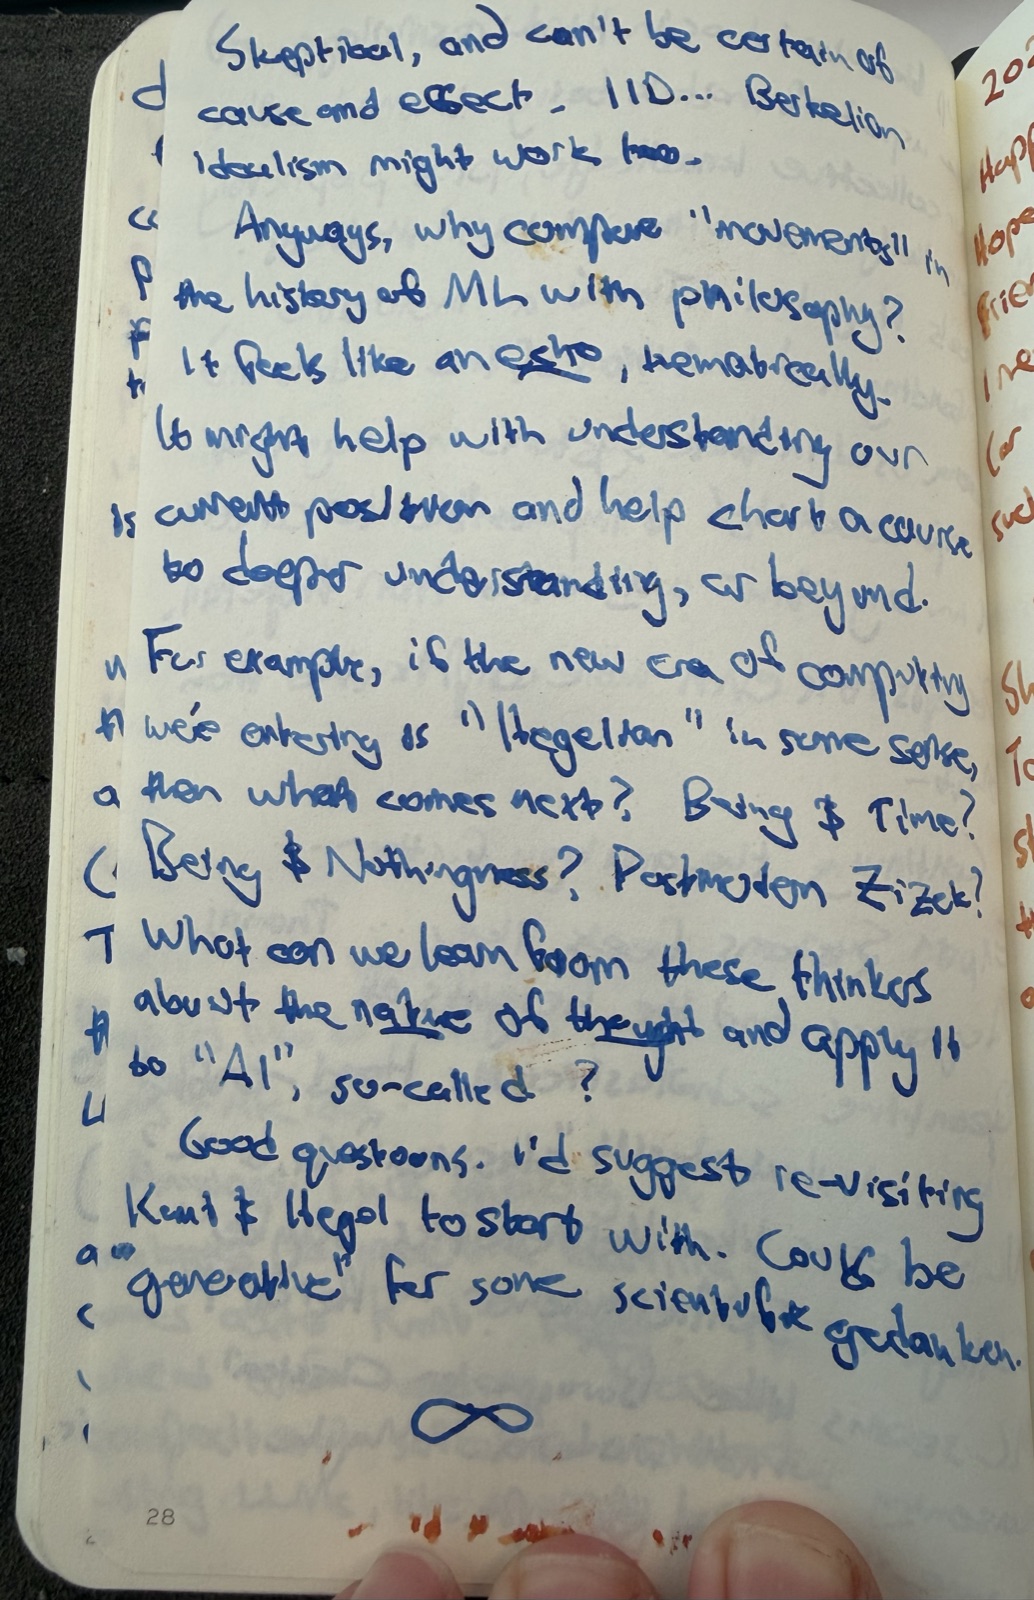 Skeptical, and can't be certain of
cause and effect. IID... Berkelian
idealism might work too.
Anyways, why compare "movements" in
the history of ML with philosophy?
It feels like an echo, thematically.
It might help with understanding our
current position and help chart a course
to deeper understanding, or beyond.
For example, if the new era of computing
we're entering is "Hegelian" in some sense,
then what comes next? Being & Time?
Being & Nothingness? Postmodern Zizek?
What can we learn from these thinkers
about the nature of thought and apply it
to "AI", so-called?
Good questions. I'd suggest re-visiting
Kant & Hegel to start with. Could be
"generative" for some scientific gedanken.
∞
28
202
Happ
Hope
Frien
Car
suc